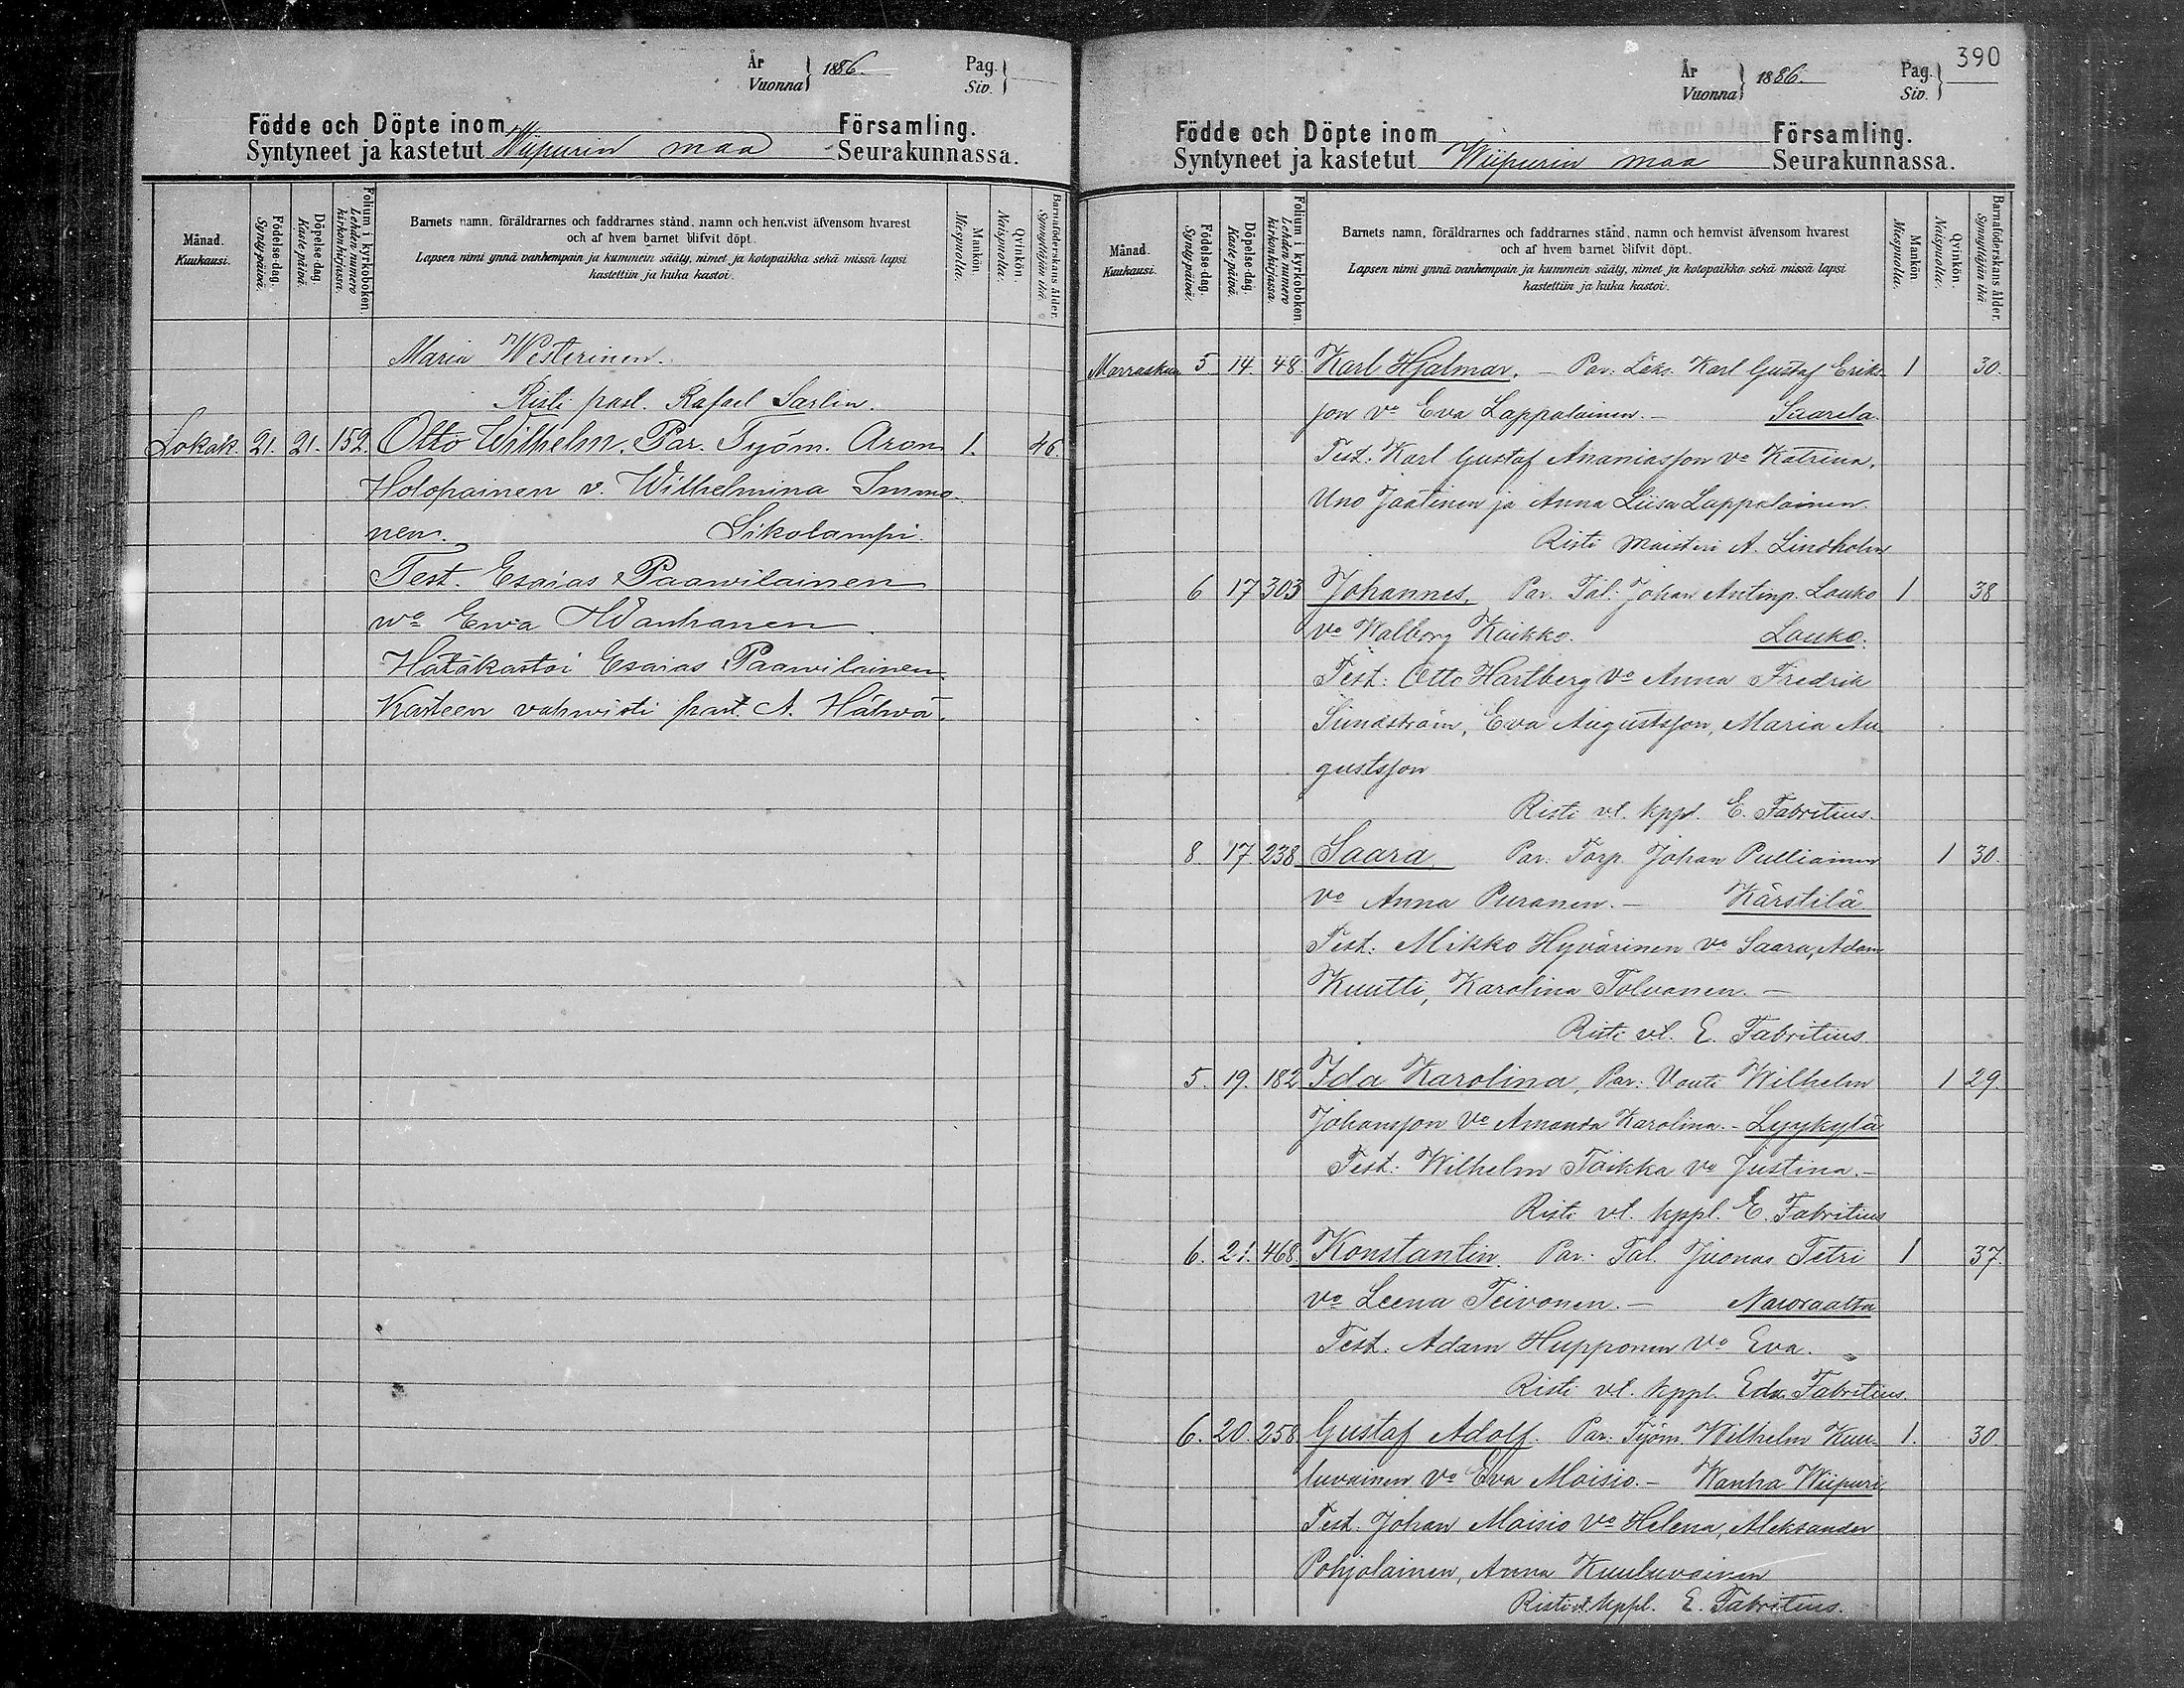 År
Vuonna } 1886.
Pag.
Siv. }
Födde och Döpte inom Församling.
Syntyneet ja kastetut Wiipurin maa Seurakunnassa.
Månad.
Kuukausi.
Födelse-dag.
Syntypäivä.
Döpelse-dag.
Kastepäivä.
Folium i kyrkoboken.
Lehden numero kirkonkirjassa.
Barnets namn, föräldrarnes och faddrarnes stånd, namn och hemvist äfvensom hvarest
och af hvem barnet blifvit döpt.
Lapsen nimi ynnä vanhempain ja kummein sääty, nimet ja kotopaikka sekä missä lapsi
kastettiin ja kuka kastoi.
Mankön.
Miespuolia.
Qvinkön.
Naispuolia.
Barnaföderskans ålder.
Synnyttäjän ikä.
Maria Westerinen.
Risti past. Rafael Sarlin.
Lokak. 21. 21. 152. Otto Wilhelm. Par. Työm. Aron 1. 46.
Holopainen v. Wilhelmina Immo-
nen. Sikolampi.
Test. Esaias Paawilainen
wo Ewa Wanhanen
Hätäkastoi Esaias Paawilainen.
Kasteen vahwisti past. A. Hähwä.
390
År
Vuonna } 1886.
Pag.
Siv. }
Födde och Döpte inom Församling.
Syntyneet ja kastetut Wiipurin maa Seurakunnassa.
Månad.
Kuukausi.
Födelse-dag.
Syntypäivä.
Döpelse-dag.
Kastepäivä.
Folium i kyrkoboken.
Lehden numero kirkonkirjassa.
Barnets namn, föräldrarnes och faddrarnes stånd, namn och hemvist äfvensom hvarest
och af hvem barnet blifvit döpt.
Lapsen nimi ynnä vanhempain ja kummein sääty, nimet ja kotopaikka sekä missä lapsi
kastettiin ja kuka kastoi.
Mankön.
Miespuolia.
Qvinkön.
Naispuolia.
Barnaföderskans ålder.
Synnyttäjän ikä.
Marraskuu 5 14. 48. Karl Hjalmar. - Par: Karl Gustaf Eriks- 1 30.
son vo Eva Lappalainen. - Saarela.
Test: Karl Gustaf Ananiasson vo Katrina,
Uno Jaatinen ja Anna Liisa Lappalainen.
Risti Maisteri A. Lindholm
6 17 303 Johannes, Par. Tal: Johan Antinp. Lauko 1 38
vo Walborg Kaikko. Lauko.
Test: Otto Hartberg vo Anna Fredrik
Sundström, Eva Augustsson, Maria Au-
gustsson
Risti vl. kppl. E. Fabritius.
8. 17 238 Saara Par. Torp. Johan Pulliainen 1 30.
vo Anna Puranen. - Kärstilä
Test: Mikko Hyvärinen vo Saara, Adam
Kuutti, Karolina Tolvanen. -
Risti vl. E. Fabritius.
5. 19. 182 Ida Karolina, Par: Vouti Wilhelm 1 29
Johansson vo Amanda Karolina. - Lyykylä
Test: Wilhelm Toikka vo Justina. -
Risti vl. kppl. E. Fabritius
6. 21. 468. Konstantin. Par: Tal. Juonas Tetri 1 37.
vo Leena Teivonen. - Naworaatta
Test: Adam Hupponen vo Eva.
Risti vl. kppl. Edv. Fabritius.
6. 20. 258 Gustaf Adolf. Par: Työm. Wilhelm Kuu- 1. 30
luvainen vo Eva Moisio. - Wanha Wiipuri
Test. Johan Moisio vo Helena, Aleksander
Pohjolainen, Anna Kuuluvainen
Risti vl. kppl. E. Fabritius.